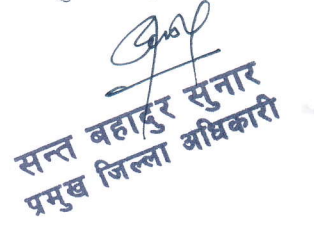 सन्त बहादुर सुनार
प्रमुख जिल्ला अधिकारी